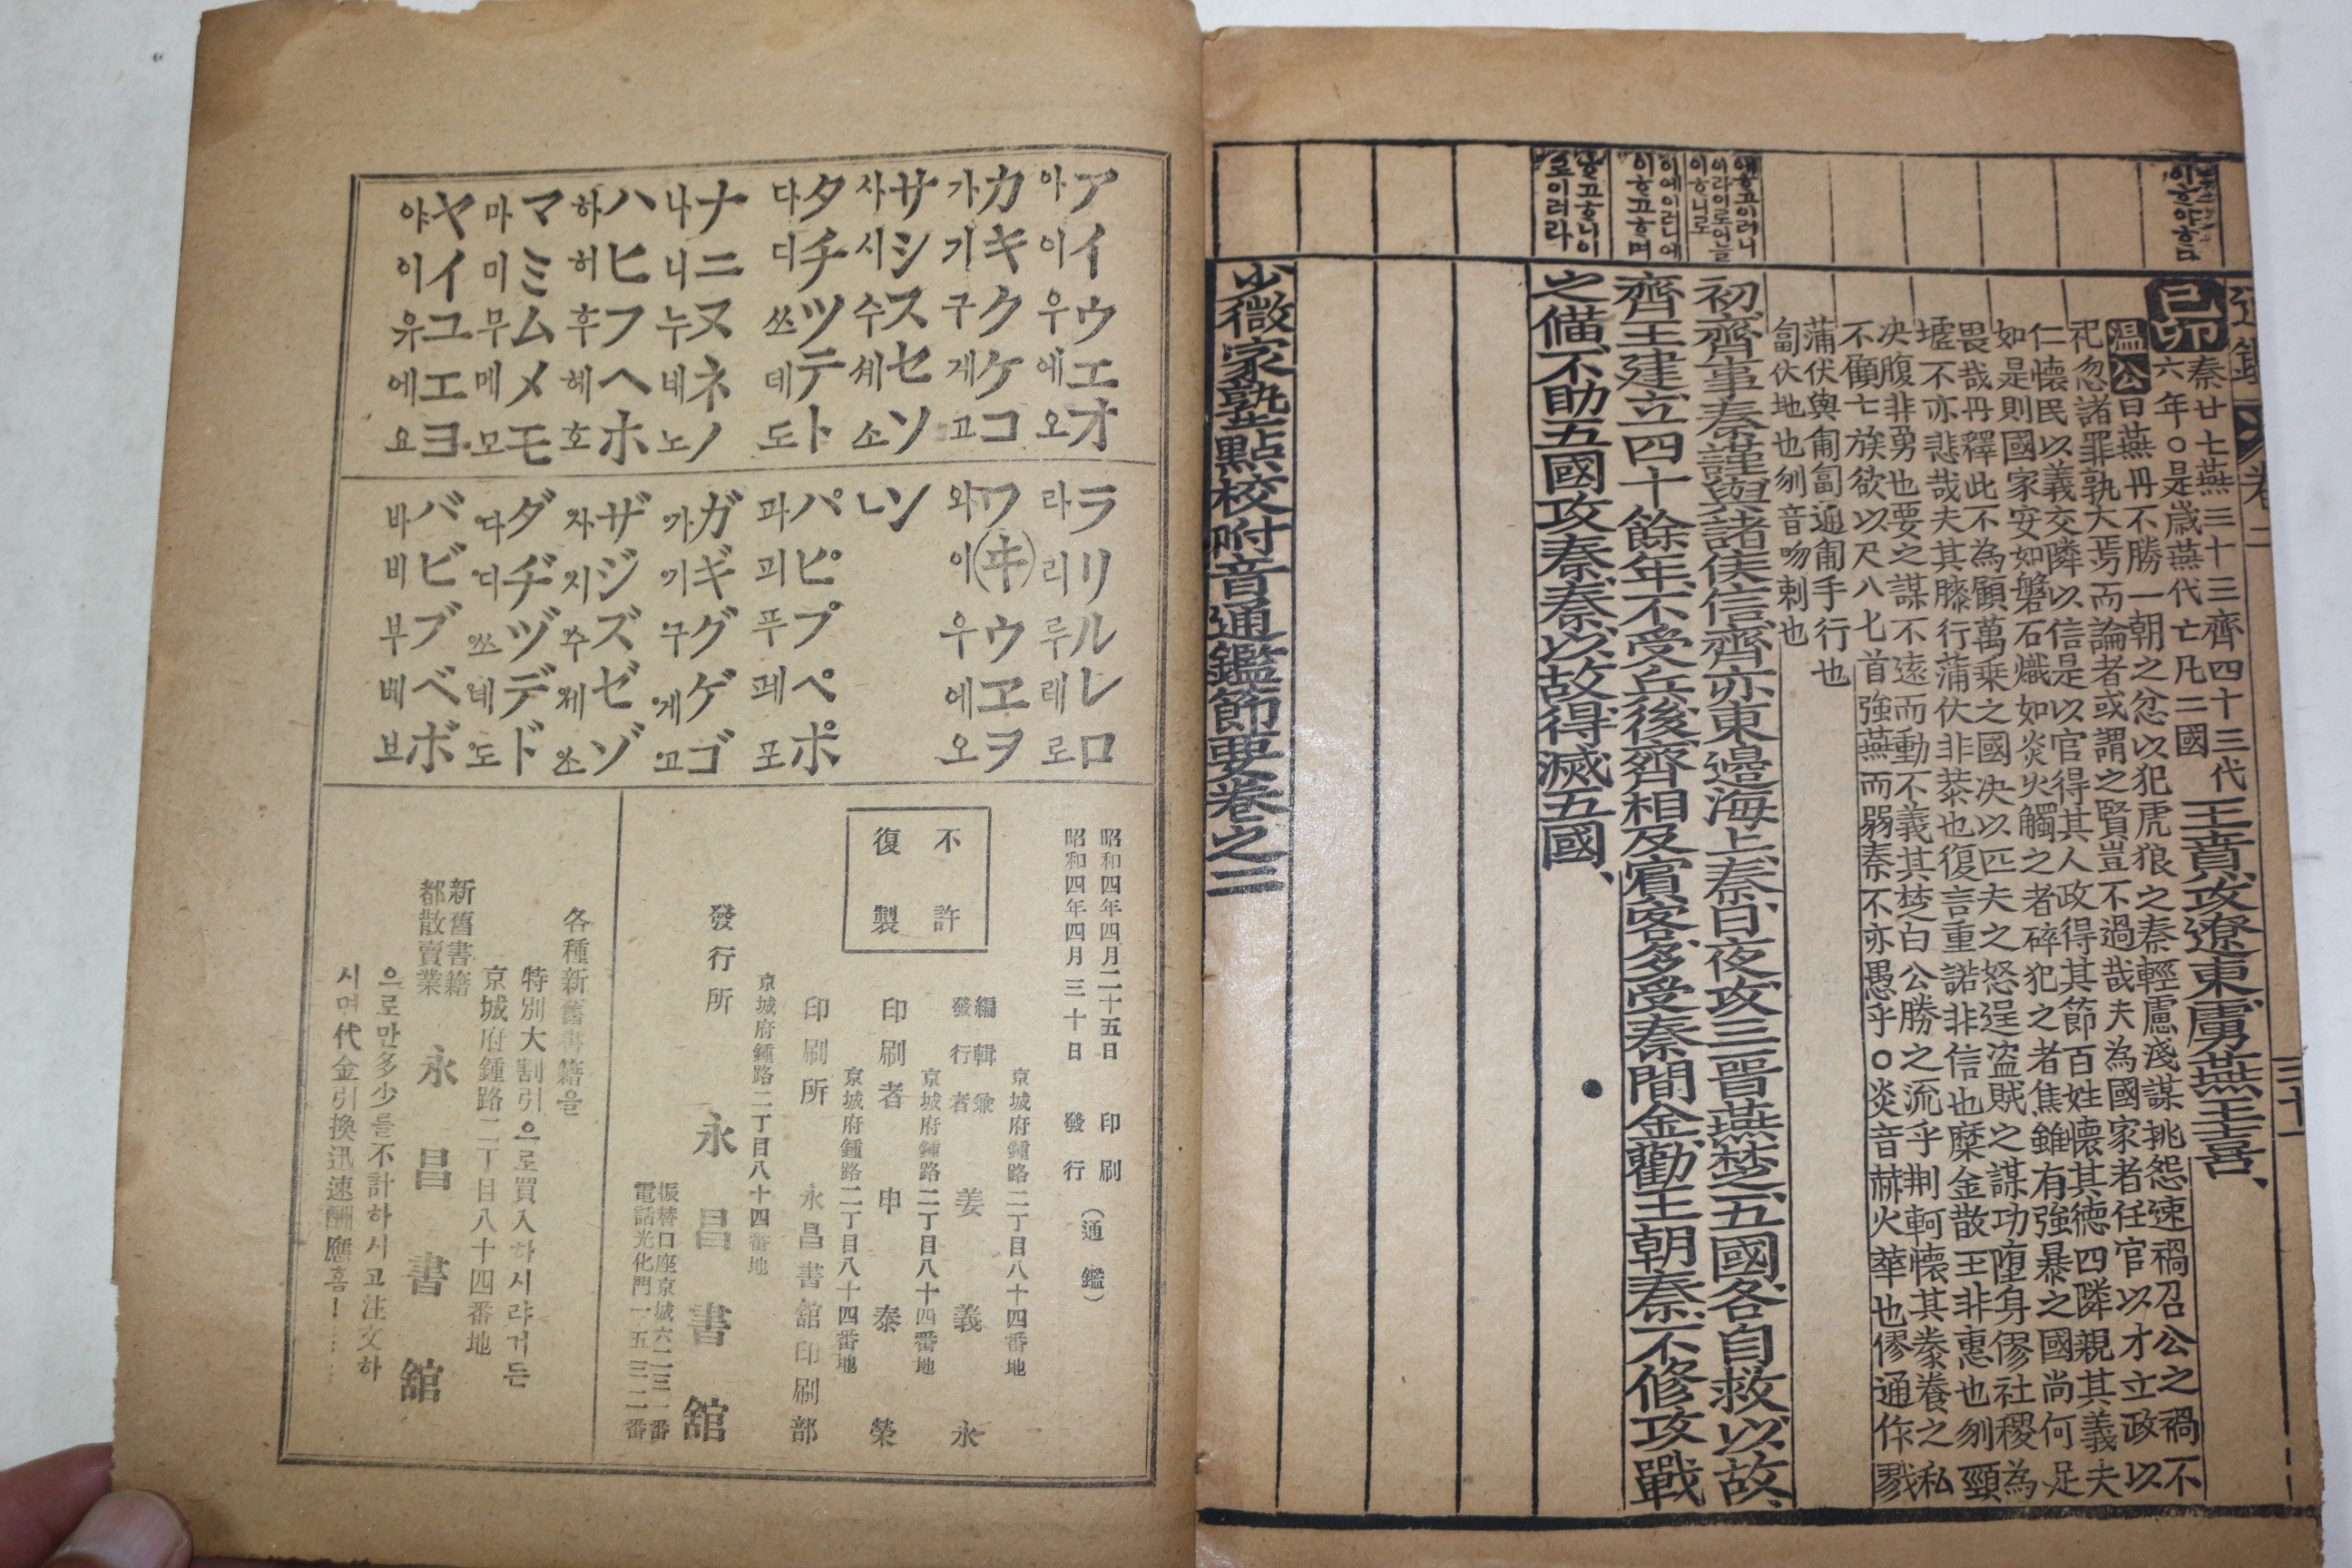 通鑑 卷二 三十一
己卯
秦廿七燕三十三齊四十三代
六年○是歲燕代亡凡二國
王賁、攻遼東、虜燕王喜、
温公曰燕丹不勝一朝之忿以犯虎狼之秦輕慮淺謀挑怨速禍召公之禍不
祀忽諸罪孰大焉而論者或謂之賢豈不過哉夫為國家者任官以才立政以
仁懷民以義交隣以信是以官得其人政得其節百姓懷其德四隣親其義夫
如是則國家安如磐石熾如炎火觸之者碎犯之者焦雖有強暴之國尚何足
畏哉丹釋此不為顧萬乗之國决以匹夫之怒逞盗賊之謀功墮身僇社稷為
墟不亦悲哉夫其膝行蒲伏非恭也復言重諾非信也糜金散王非惠也刎頸
决腹非勇也要之謀不遠而動不義其楚白公勝之流乎荆軻懷其豢養之私
不顧七族欲以尺八七首強燕而弱秦不亦愚乎○炎音赫火華也僇通作戮
蒲伏與匍匐通匍手行也
匐伏地也刎音吻剌也
初、齊事秦謹、與諸侯信、齊亦東邉海上、秦、日夜、攻三晋燕楚、五國、各自救、以故、
齊王建、立四十餘年、不受兵、後、齊相及賓客、多受秦間金、勸王朝秦、不修攻戰
之備、不助五國攻秦、秦、以、故、得滅五國、
少微家塾點校附音通鑑節要卷之二
ア아 カ가 サ사 タ다 ナ나 ハ하 マ마 ヤ야
イ이 キ기 シ시 チ디 ニ니 ヒ허 ミ미 イ이
ウ우 ク구 ス수 ツ쓰 ヌ누 フ후 ム무 ユ유
エ에 ケ게 セ세 テ데 ネ네 ヘ헤 メ메 エ에
オ오 コ고 ソ소 ト도 ノ노 ホ호 モ모 ヨ요
ラ라 ワ와 ンㄴ パ파 ガ가 ザ자 ダ다 バ바
リ리 (ヰ)이 ピ피 ギ기 ジ지 ヂ디 ビ비
ル루 ウ우 プ푸 グ구 ズ주 ヅ쓰 ブ부
レ레 ヱ에 ペ페 ゲ게 ゼ제 デ데 ベ베
ロ로 ヲ오 ポ포 ゴ고 ゾ소 ド도 ボ보
昭和四年四月二十五日 印刷
昭和四年四月三十日 發行 (通鑑)
不許
復製
京城府鍾路二丁目八十四番地
編輯兼
發行者 姜義永
京城府鍾路二丁目八十四番地
印刷者 申泰榮
京城府鍾路二丁目八十四番地
印刷所 永昌書舘印刷部
京城府鍾路二丁目八十四番地
發行所 永昌書舘
振替口座京城六二三一番
電話光化門一五三二番
各種新舊書籍을
特別大割引으로買入하시랴거든
京城府鍾路二丁目八十四番地
新舊書籍
都散賣業 永昌書舘
으로만多少를不計하시고注文하
시며代金引換迅速酬應홈!